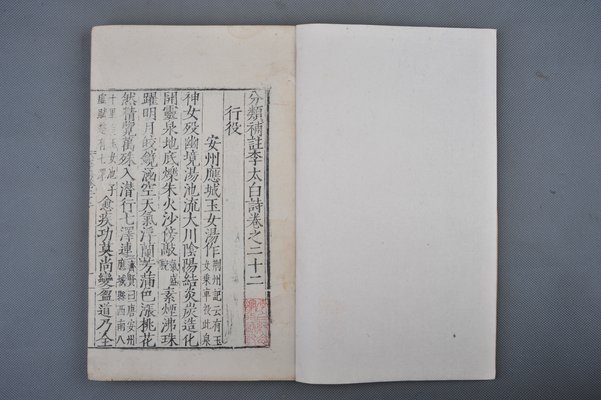 分類補註李太白詩卷之二十二
行役
安州應城玉女湯作荊州記云有玉女乘車投此泉
神女殁幽境湯池流大川陰陽結炎炭造化
開靈泉地底爍朱火沙傍歊素煙沸珠
躍明月皎鏡涵空天氣浮蘭芳滿色漲桃花
然精覽萬殊入潛行七澤連
愈疾功莫尚變盈道乃全